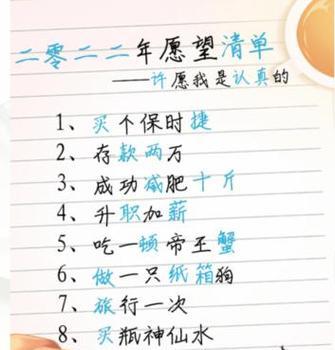 二零二二年愿望清单
——许愿我是认真的
1、买个保时捷
2、存款两万
3、成功减肥十斤
4、升职加薪
5、吃一顿帝王蟹
6、做一只纸箱狗
7、旅行一次
8、买瓶神仙水